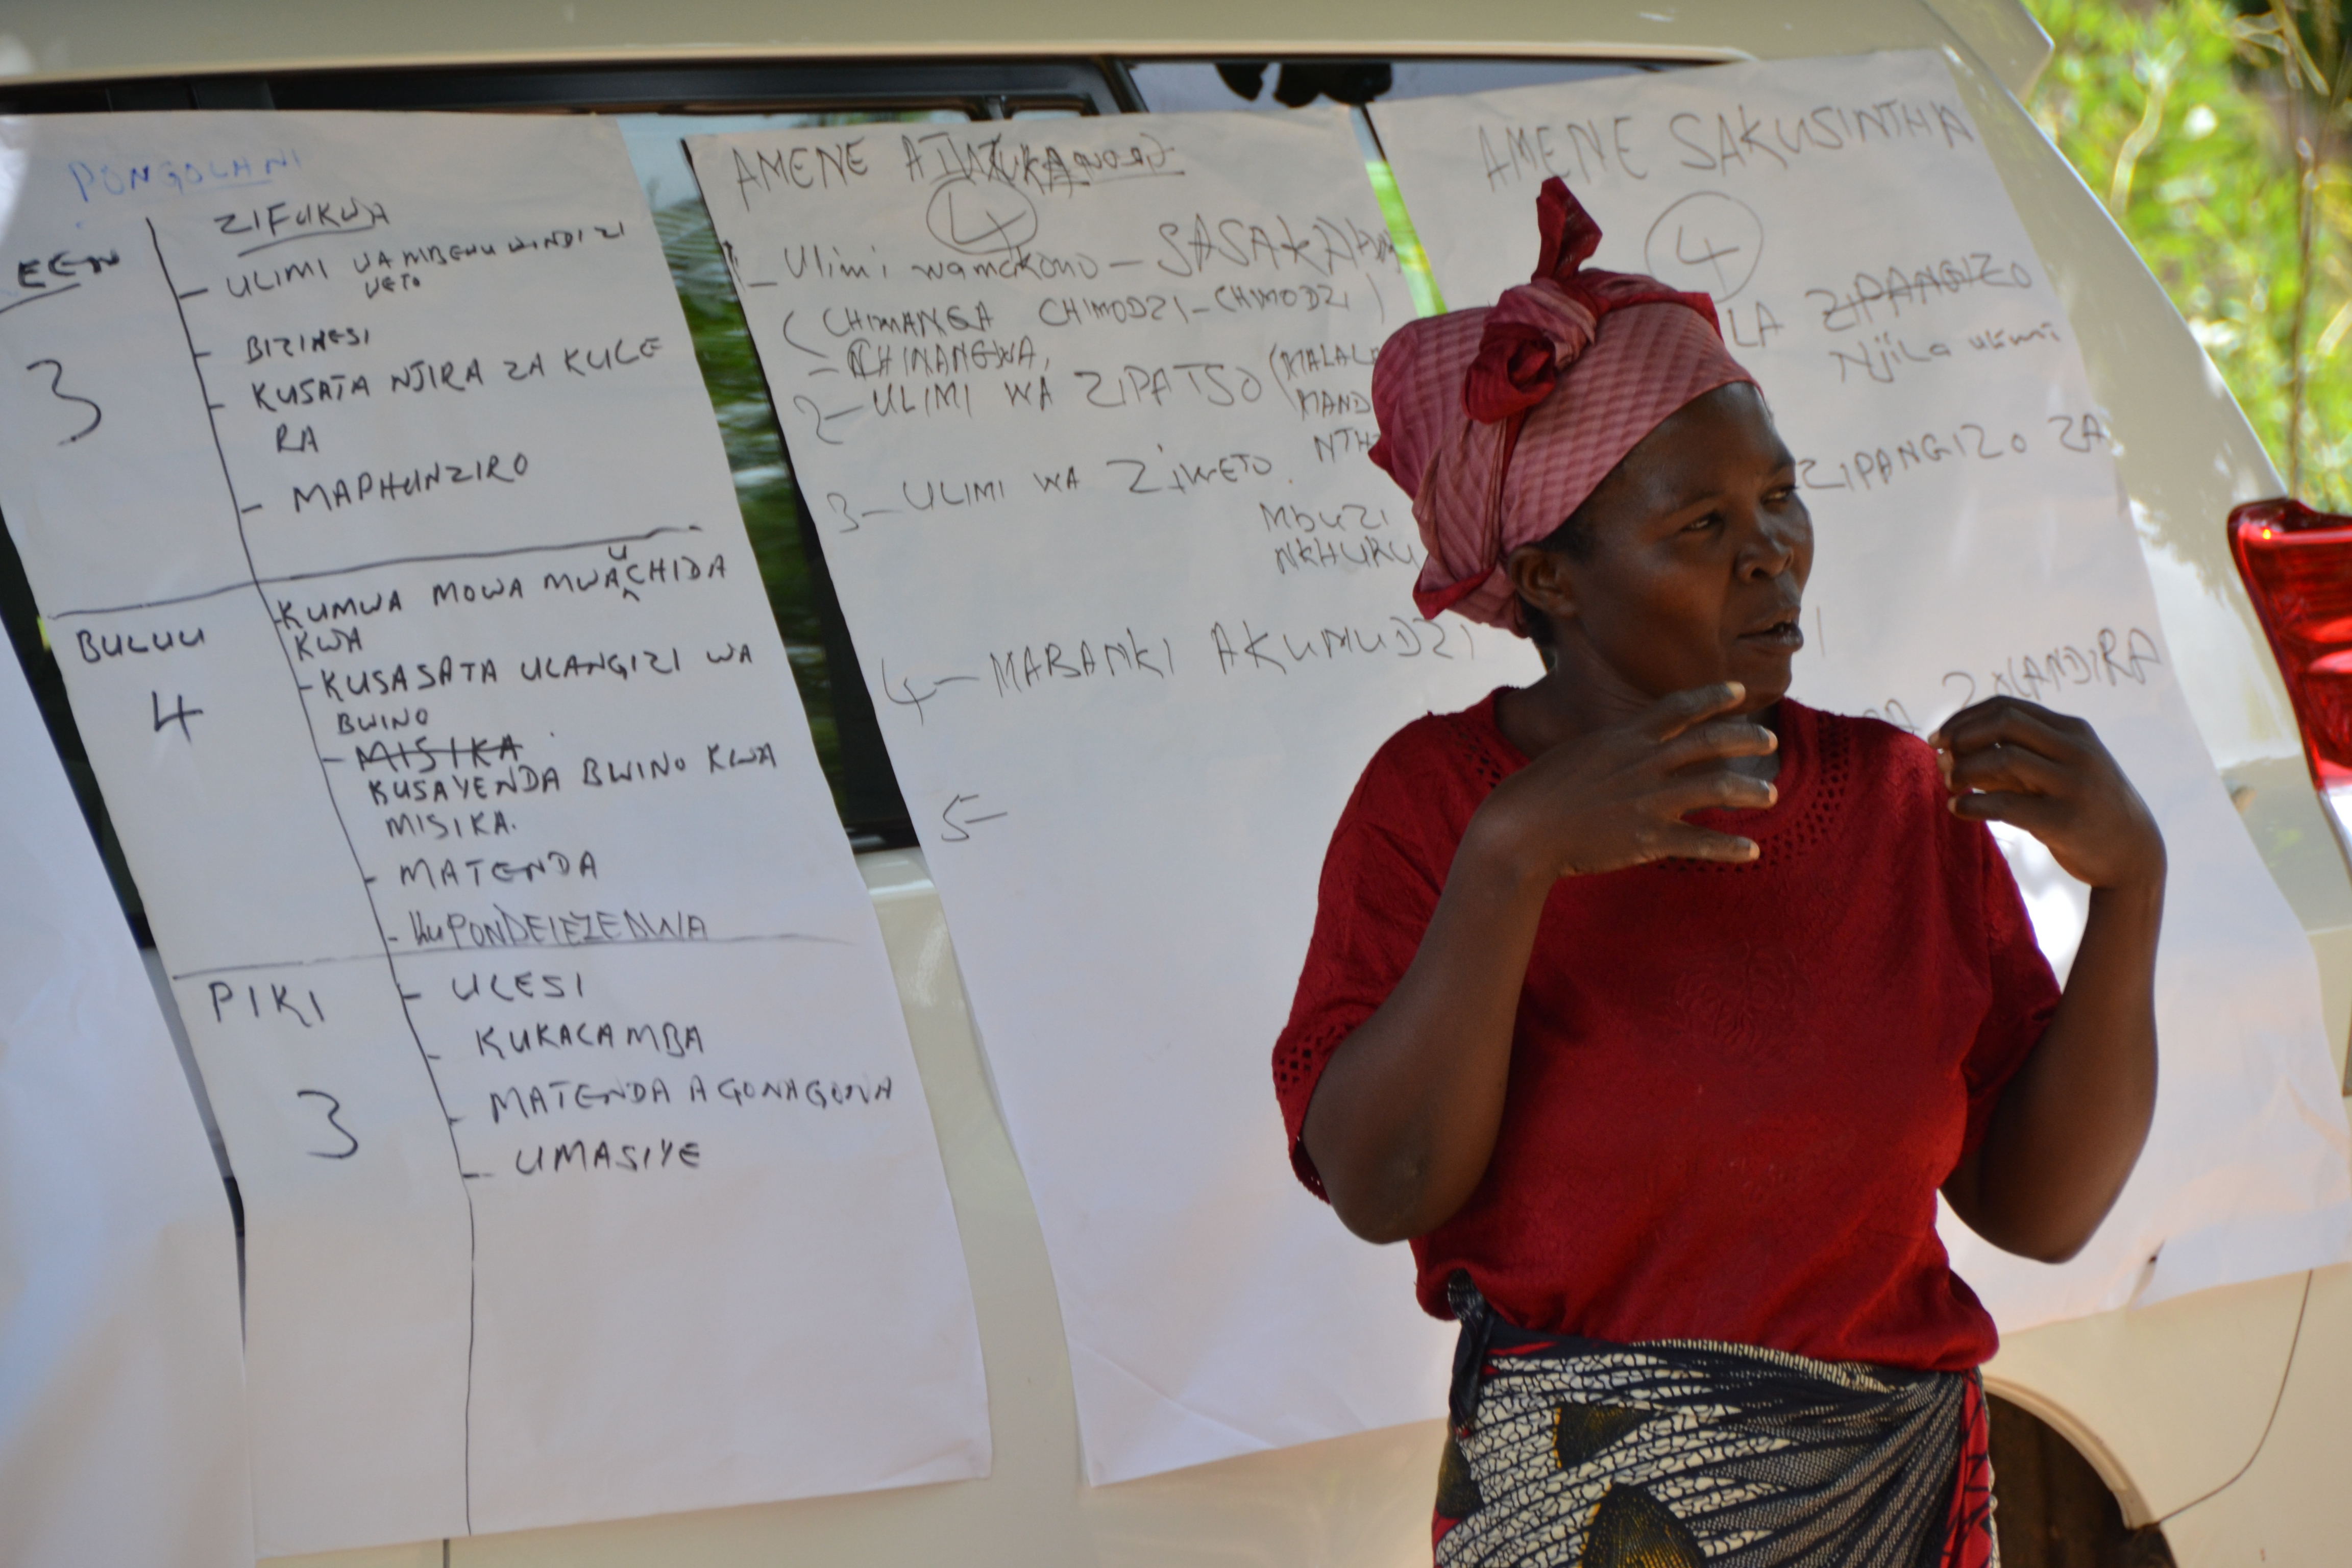 PONGOLANI
EEN
ZIFUKWA
3
- ULIMI WA MBEWU NDI ZI
WETO
- BIZINESI
- KUSATA NJIRA ZA KULE
RA
- MAPHUNZIRO
BULUU
4
- KUMWA MOWA MWAUCHIDA
KWA
- KUSASATA ULANGIZI WA
BWINO
- MISIKA
KUSAYENDA BWINO KWA
MISIKA.
- MATENDA
- KUPONDELEZEDWA
PIKI
3
- ULESI
- KUKALAMBA
- MATENDA AGONAGONA
- UMASIYE
AMENE
4
1- Ulimi wamakono - SASAKAWA
(CHIMANGA CHIMODZI-CHIMODZI)
- CHINANGWA,
2- ULIMI WA ZIPATSO (MALAL
MAND
NTH
3- ULIMI WA ZIWETO.
MbUZI
NKHUKU
4- MABANKI AKUMUDZI
5-
AMENE SAKUSINTHA
4
LA ZIPANGIZO
Njila ulimi
ZIPANGIZO ZA